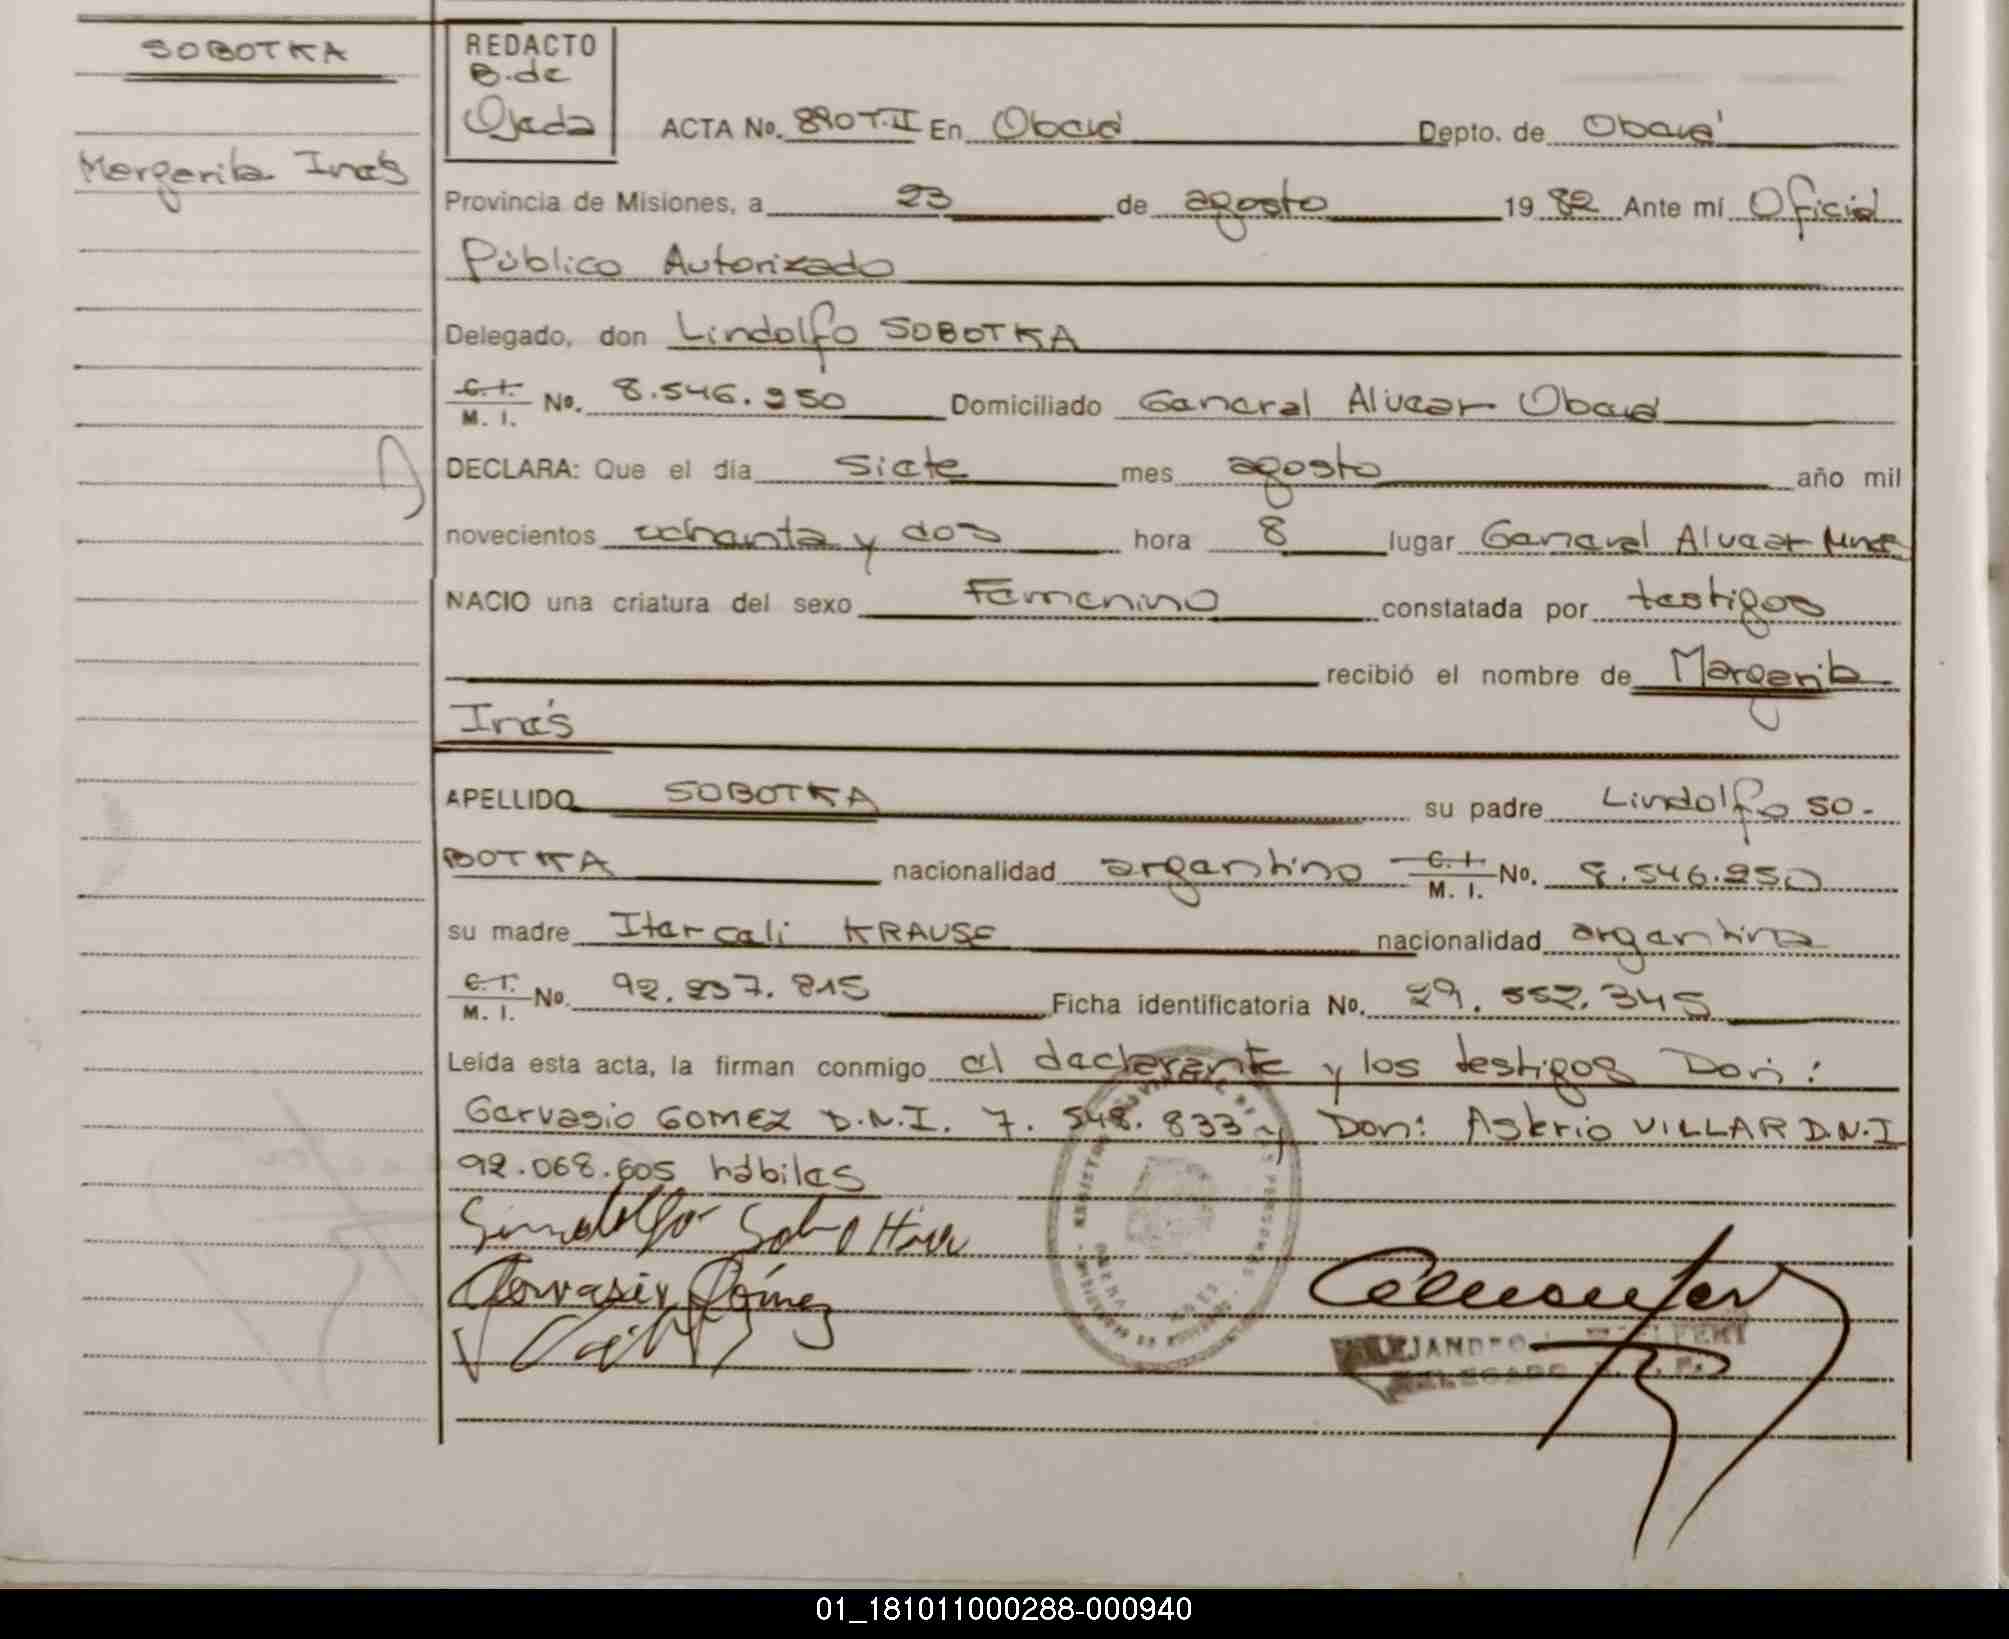 SOBOTKA
Margarita Inés
REDACTO
B. de
Ojeda
ACTA No. 890 T.II En Oberá Depto. de Oberá
Provincia de Misiones, a 23 de agosto 1982 Ante mí Oficial
Público Autorizado
Delegado, don Lindolfo SOBOTKA
C. I. / M. I. No. 8.546.950 Domiciliado General Alvear Oberá
DECLARA: Que el día siete mes agosto año mil
novecientos ochenta y dos hora 8 lugar General Alvear Mnes
NACIO una criatura del sexo Femenino constatada por testigos
recibió el nombre de Margarita
Inés
APELLIDO SOBOTKA su padre Lindolfo SO-
BOTKA nacionalidad argentino C. I. / M. I. No. 8.546.950
su madre KRAUSE nacionalidad argentina
C. I. / M. I. No. 92.237.815 Ficha identificatoria No. 29.552.345
Leída esta acta, la firman conmigo el declarante y los testigos Don:
Gervasio GOMEZ D.N.I. 7.548.833 y Don: Asterio VILLAR D.N.I
92.068.605 hábiles
Gervasio Gómez
01_181011000288-000940